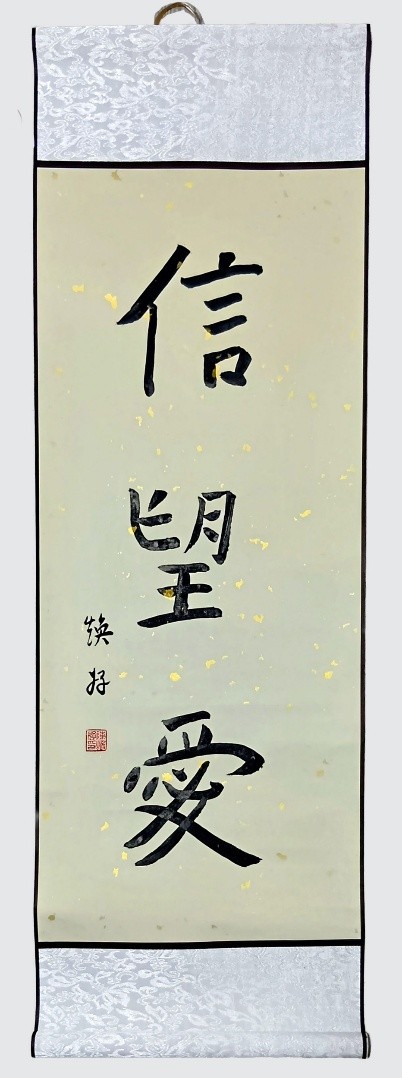 信望愛
煥